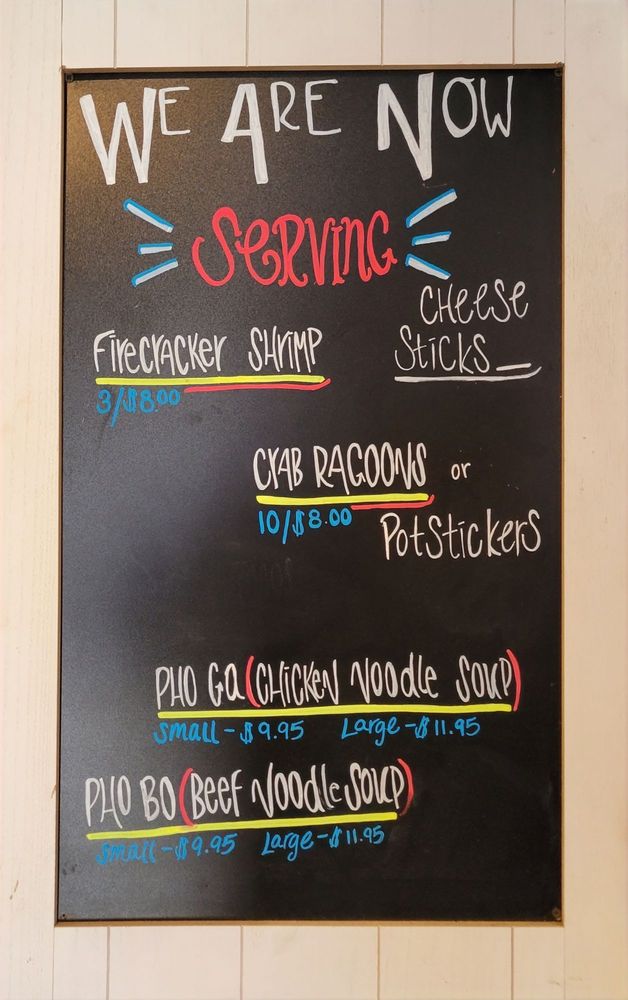 WE ARE NOW
SERVING
CHEESE
Firecracker SHRIMP
Sticks
3/$8.00
CRAB RAGOONS or
10/$8.00
Potstickers
PHO Ga (CHICKEN Noodle Soup)
Small - $9.95 Large - $11.95
PHO BO (Beef Noodle Soup)
Small - $9.95 Large - $11.95